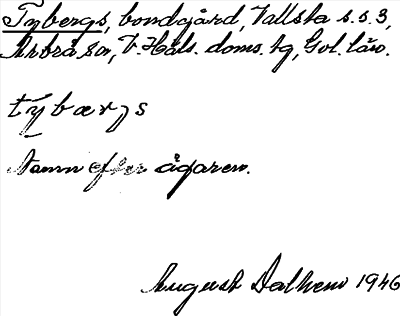 Tybergs, bondgård, Vallsta s.s. 3,
Arbrå sn, V. Häls. doms. tg, Gvl. län.
tybærgs
Namn efter ägaren.
August Dalhem 1946